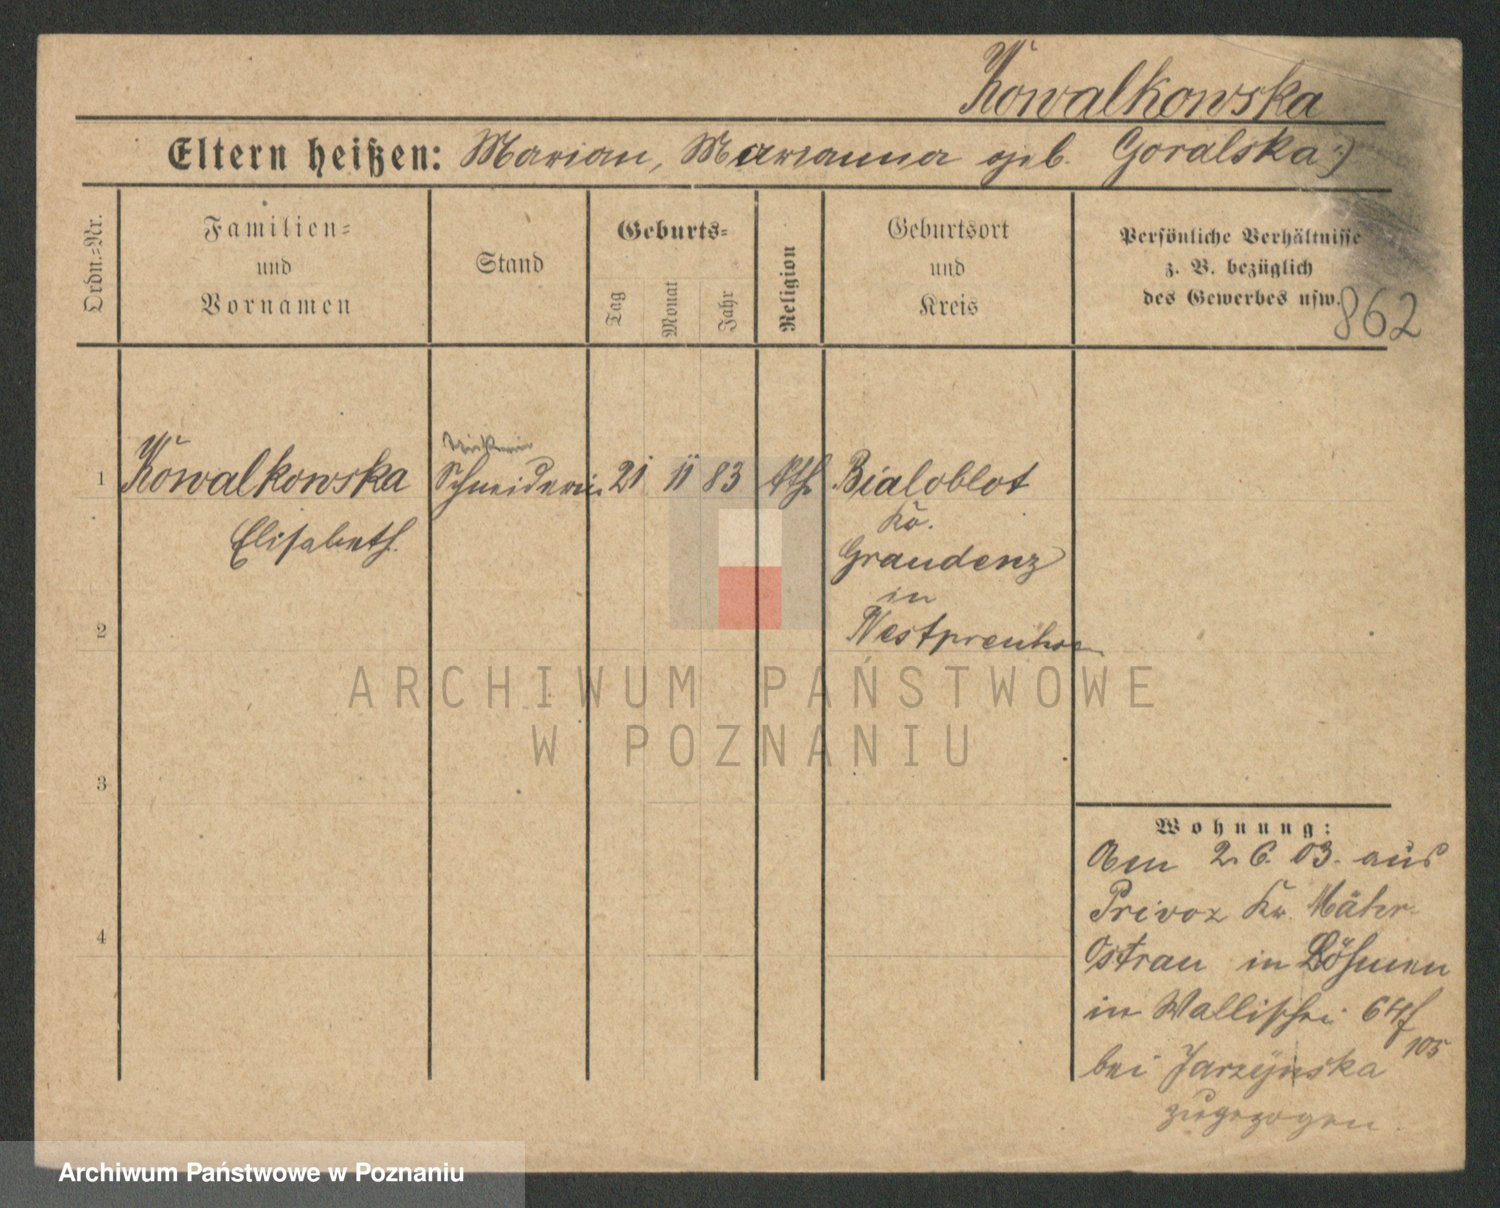 Kowalkowska
Eltern heißen: Marian, Marianna geb. Goralska)
Ordn.=Nr.
Familien=
und
Vornamen
Stand
Geburts=
Tag
Monat
Jahr
Religion
Geburtsort
und
Kreis
Persönliche Verhältnisse
z. B. bezüglich
des Gewerbes usw.
862
1 Kowalkowska Schneiderin 21 11 83 kth. Bialoblot
Elisabeth.
Kr.
Graudenz
in
2
Westpreußen
3
4
Wohnung:
Am 2. 6. 03. aus
Privoz Kr. Mähr.
Ostrau in Böhmen
in Wallischei 64/
105
bei Jarzynska
zugezogen.
ARCHIWUM PAŃSTWOWE
W POZNANIU
Archiwum Państwowe w Poznaniu